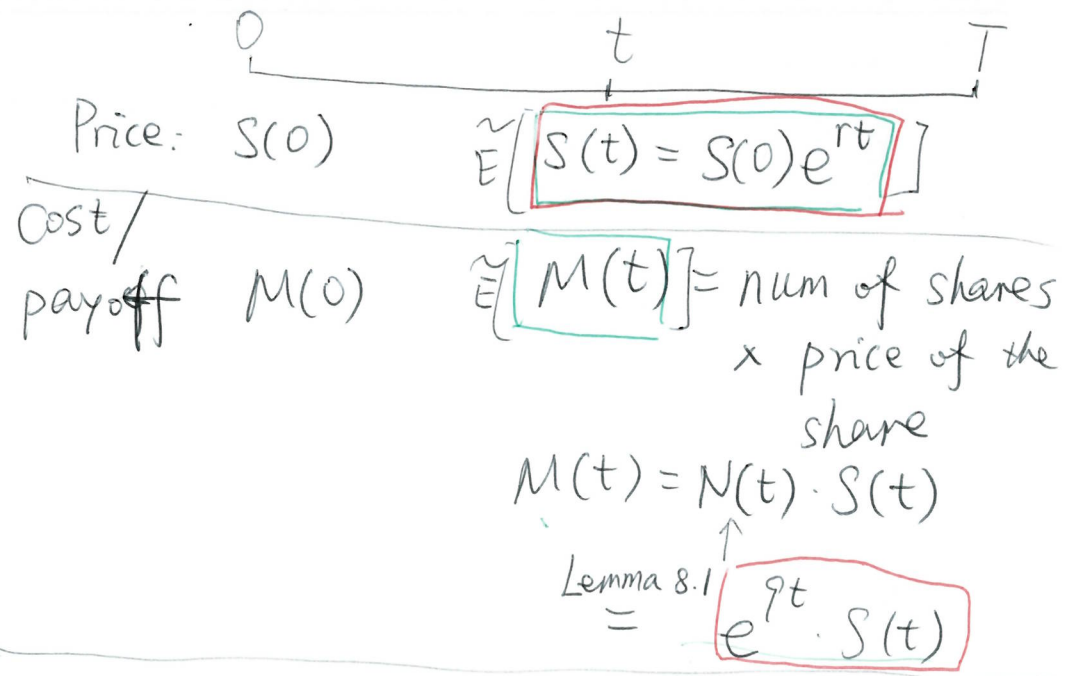 0 t T
Price: S(0) Ẽ[S(t) = S(0)e^{rt}]
Cost/
payoff M(0) Ẽ[M(t)] = num of shares
x price of the
share
M(t) = N(t) · S(t)
↑
Lemma 8.1
= e^{qt} · S(t)